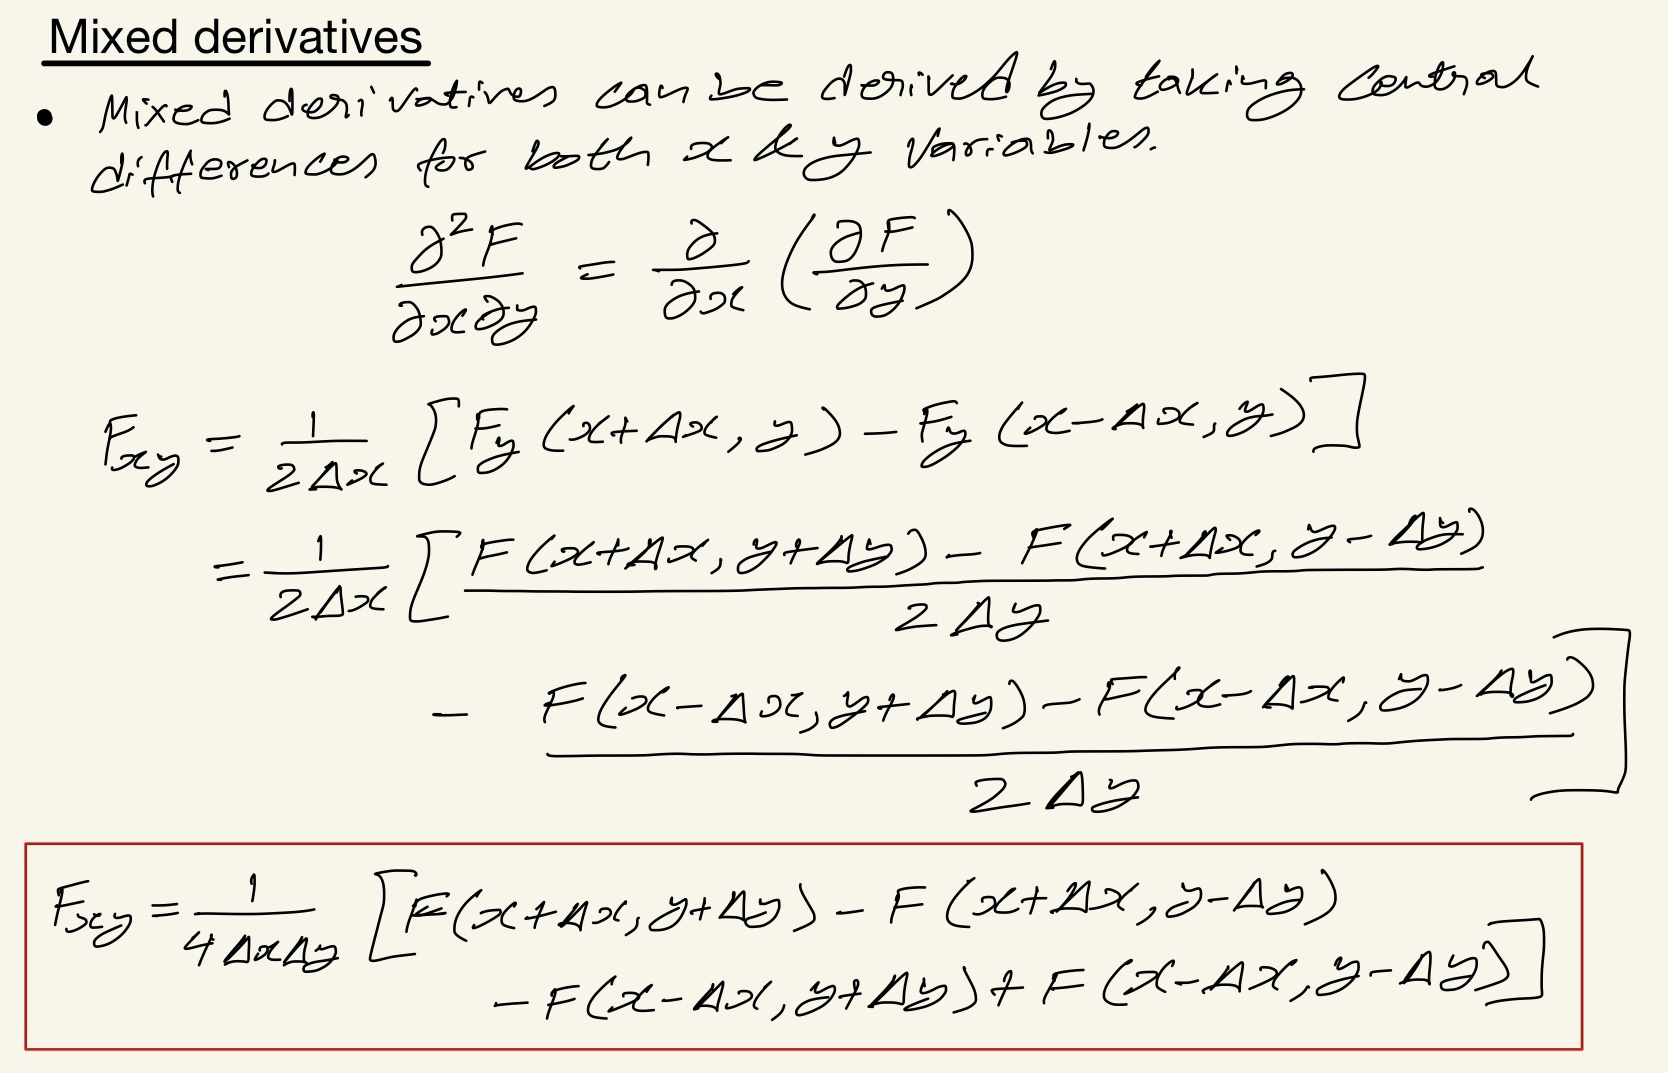 Mixed derivatives
• Mixed derivatives can be derived by taking central
differences for both x & y variables.
∂²F/∂x∂y = ∂/∂x (∂F/∂y)
F_xy = 1/2Δx [F_y (x+Δx, y) − F_y (x−Δx, y)]
= 1/2Δx [F(x+Δx, y+Δy) − F(x+Δx, y−Δy)/2Δy
− F(x−Δx, y+Δy) − F(x−Δx, y−Δy)/2Δy]
F_xy = 1/4ΔxΔy [F(x+Δx, y+Δy) − F(x+Δx, y−Δy)
− F(x−Δx, y+Δy) + F(x−Δx, y−Δy)]